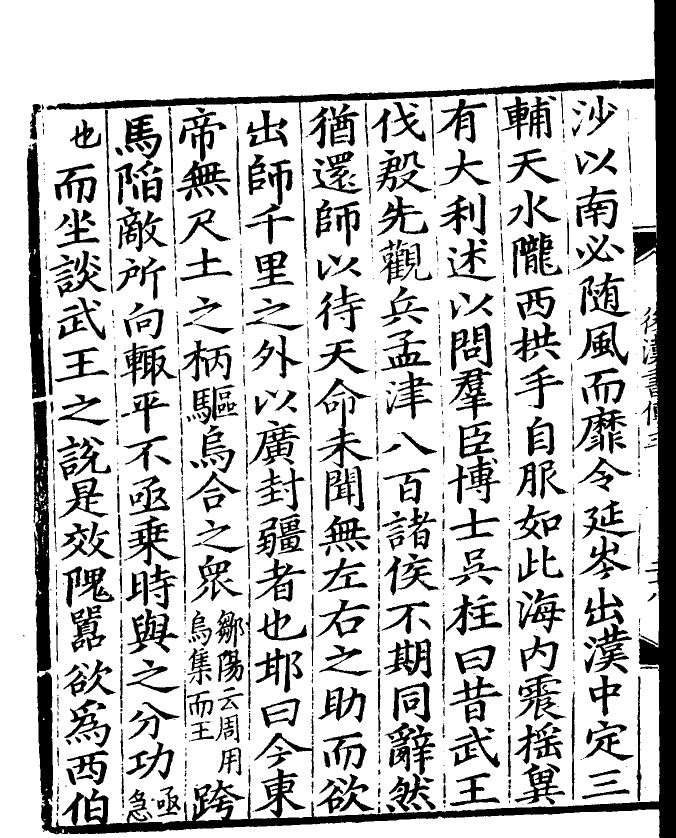 後漢書傳三
沙以南必随風而靡令延岑出漢中定三
輔天水隴西拱手自服如此海内震揺兾
有大利述以問羣臣博士吳柱曰昔武王
伐殷先觀兵孟津八百諸侯不期同辭然
猶還師以待天命未聞無左右之助而欲
出師千里之外以廣封疆者也耶曰今東
帝無尺土之柄驅烏合之衆鄒陽云周用烏集而王跨
馬陷敵所向輙平不亟乘時與之分功亟急
也而坐談武王之說是效隗囂欲爲西伯